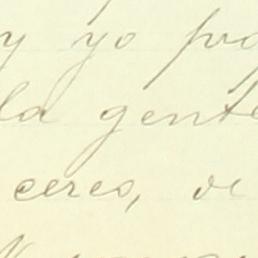 y yo pro
la gente
ceres, de